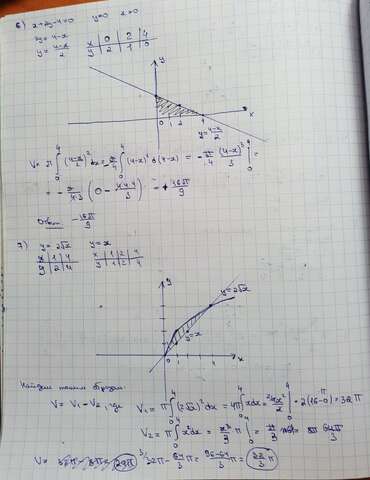 6) x+2y-4=0 y=0 x=0
2y=4-x
y=\frac{4-x}{2}
x | 0 | 2 | 4
y | 2 | 1 | 0
y
0 1 2 4 x
y=\frac{4-x}{2}
V= π \int_0^4 (\frac{4-x}{2})^2 dx = -\frac{π}{4} \int_0^4 (4-x)^2 d(4-x) = -\frac{π}{4} \frac{(4-x)^3}{3} |_0^4 =
= -\frac{π}{4·3} (0 - \frac{4·4·4}{3}) = \frac{16π}{9}
Ответ \frac{16π}{9}
7) y=2√x y=x
x | 1 | 4
y | 2 | 4
x | 1 | 2 | 4
y | 1 | 2 | 4
y
y=2√x
y=x
0 1 2 4 x
Найдем таким образом:
V= V₁ - V₂, где V₁ = π \int_0^4 (2√x)^2 dx = 4π \int_0^4 x dx = \frac{4x^2}{2} |_0^4 = 2(16-0)π = 32π
V₂ = π \int_0^4 x^2 dx = \frac{x^3}{3} π |_0^4 = \frac{64π}{3}
V= 32π - \frac{64}{3}π = \frac{96-64}{3}π = \frac{32}{3}π